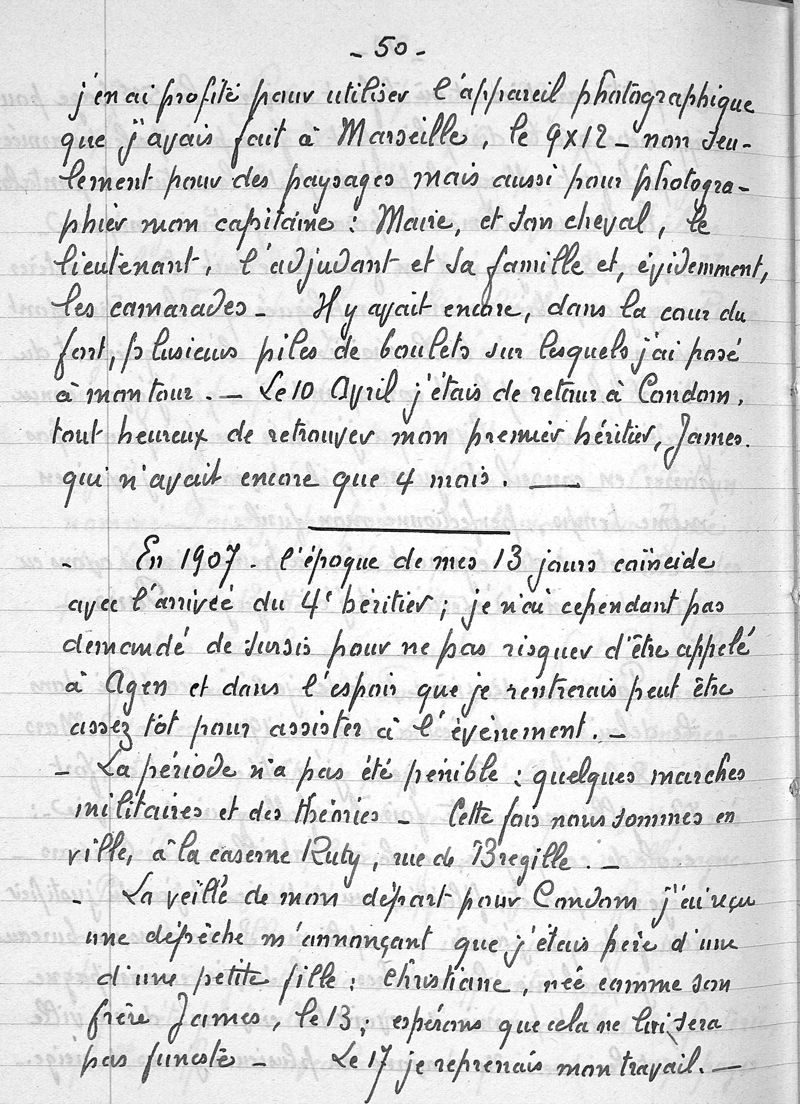 - 50 -
j'en ai profité pour utiliser l'appareil photographique
que j'avais fait à Marseille, le 9x12 - non seu-
lement pour des paysages mais aussi pour photogra-
phier mon capitaine : Marie, et son cheval, le
lieutenant, l'adjudant et sa famille et, évidemment,
les camarades - Il y avait encore, dans la cour du
fort, plusieurs piles de boulets sur lesquels j'ai posé
à mon tour. - Le 10 Avril j'étais de retour à Condom,
tout heureux de retrouver mon premier héritier, James.
qui n'avait encore que 4 mois. -
- En 1907. l'époque de mes 13 jours coïncide
avec l'arrivée du 4e héritier ; je n'ai cependant pas
demandé de sursis pour ne pas risquer d'être appelé
à Agen et dans l'espoir que je rentrerais peut être
assez tôt pour assister à l'évènement. -
- La période n'a pas été pénible : quelques marches
militaires et des théories - Cette fois nous sommes en
ville, à la caserne Ruty, rue de Bregille. -
- La veille de mon départ pour Condom j'ai reçu
une dépêche m'annonçant que j'étais père d'une
d'une petite fille : Christiane, née comme son
frère James, le 13 ; espérons que cela ne lui sera
pas funeste - Le 17 je reprenais mon travail. -